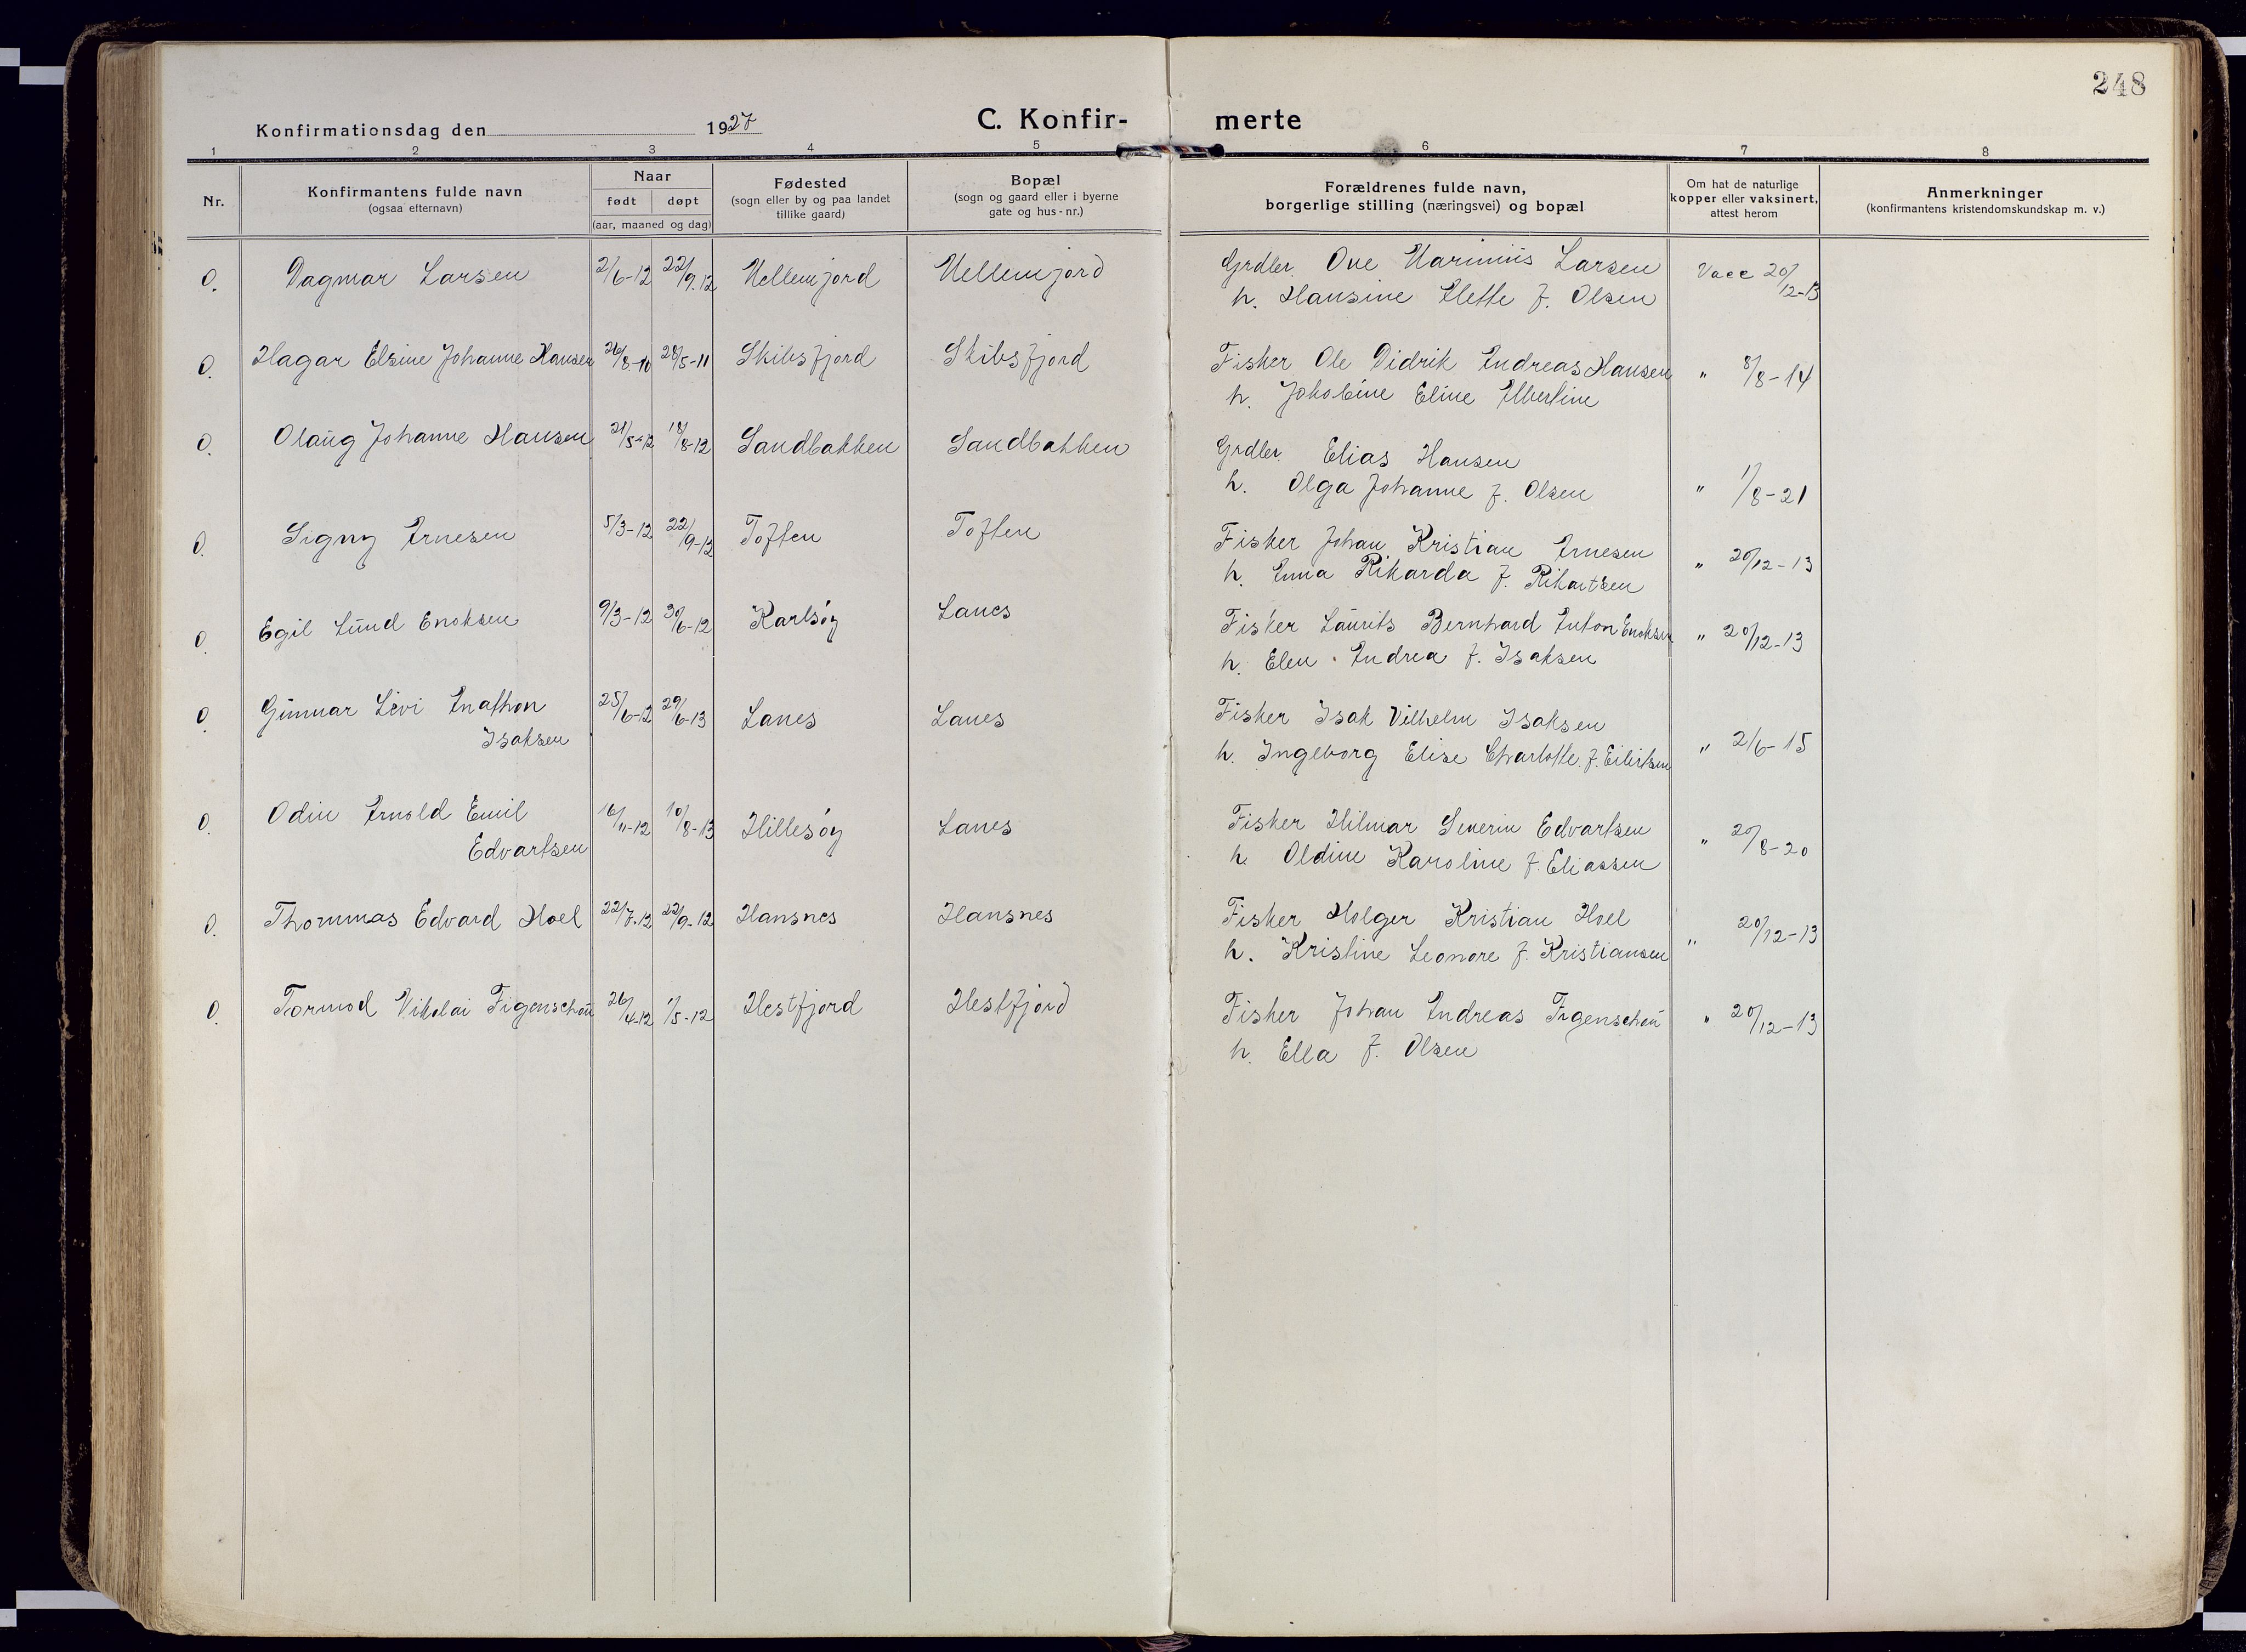 248
Konfirmationsdag den 1927
C. Konfir-
merte
1 2 3 4 5 6 7 8
Nr.
Konfirmantens fulde navn
(ogsaa efternavn)
Naar
født døpt
(aar, maaned og dag)
Fødested
(sogn eller by og paa landet
tillike gaard)
Bopæl
(sogn og gaard eller i byerne
gate og hus-nr.)
Forældrenes fulde navn,
borgerlige stilling (næringsvei) og bopæl
Om hat de naturlige
kopper eller vaksinert,
attest herom
Anmerkninger
(konfirmantens kristendomskundskap m. v.)
O. Dagmar Larsen 2/6-12 22/9.12 Hellemjord Hellemjord Grdler. Ove Larsen Vacc 20/12-13
h. Hansine f. Olsen
O. Hagar Elsine Johanne Hansen 26/8-10 28/5-11 Skibsfjord Skibsfjord Fisker Ole Didrik Andreas Hansen " 8/8-14
h. Jakobine Eline Albertine
O. Olaug Johanne Hansen 21/5-12 18/8-12 Sandbakken Sandbakken Grdler. Elias Hansen
h. Olga Johanne f. Olsen " 1/8-21
O. Signy Arnesen 5/3-12 22/9-12 Toften Toften Fisker Johan Kristian Arnesen " 20/12-13
h. Anna Rikarda f. Rikartsen
O. Egil Lund Enoksen 9/3-12 30/6-12 Karlsøy Lanes Fisker Laurits Bernhard Anton Enoksen " 20/12-13
h. Elen Andrea f. Isaksen
O. Gunnar Levi Anathon 25/6-12 29/6-13 Lanes Lanes Fisker Isak Vilhelm Isaksen
Isaksen h. Ingeborg Elise Charlotte f. Eilertsen " 2/6-15
O. Odin Arnold Emil 16/11-12 10/8-13 Hillesøy Lanes Fisker Hilmar Severin Edvartsen " 20/8-20
Edvartsen h. Oldine Karoline f. Eliassen
O. Thommas Edvard Hoel 22/7.12 22/9-12 Hansnes Hansnes Fisker Holger Kristian Hoel " 20/12-13
h. Kristine Leonore f. Kristiansen
O. Tormod Nikolai Figenschou 26/4-12 1/5-12 Hestfjord Hestfjord Fisker Johan Andreas Figenschou " 20/12-13
h. Ella f. Olsen